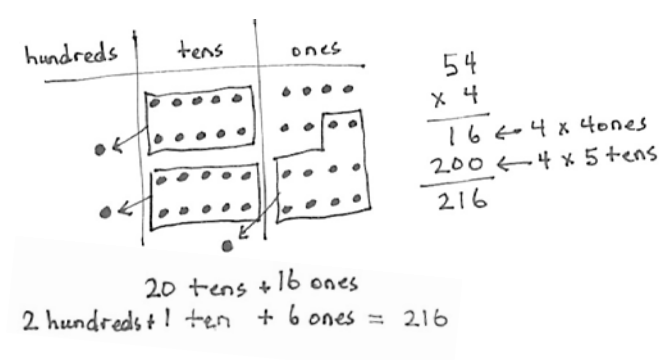 hundreds tens ones
54
x 4
16 ← 4 x 4ones
200 ← 4 x 5 tens
216
20 tens + 16 ones
2 hundreds + 1 ten + 6 ones = 216